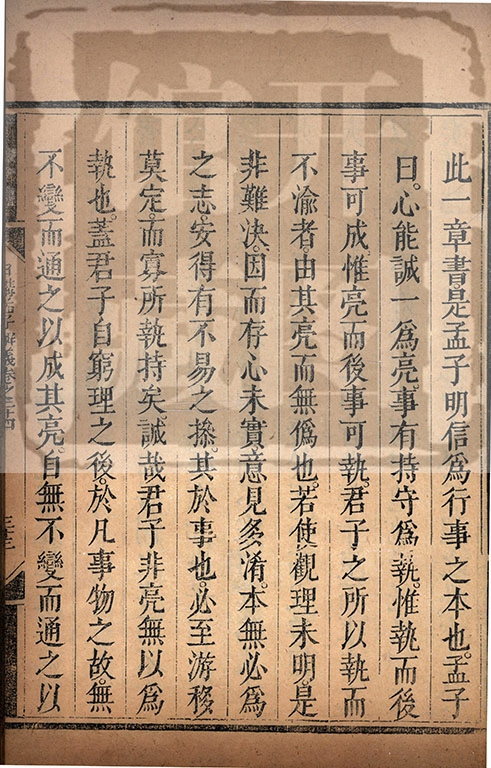 此一章書是孟子明信為行事之本也。孟子
曰。心能誠一為亮。事有持守為執。惟執而後
事可成。惟亮而後事可執。君子之所以執而
不渝者。由其亮而無偽也。若使觀理未明。是
非難決。因而存心未實。意見多淆。本無必為
之志。安得有不易之操。其於事也。必至游移
莫定。而寡所執持矣。誠哉君子非亮無以為
執也。蓋君子自窮理之後。於凡事物之故。無
不變而通之以成其亮。自無不變而通之以